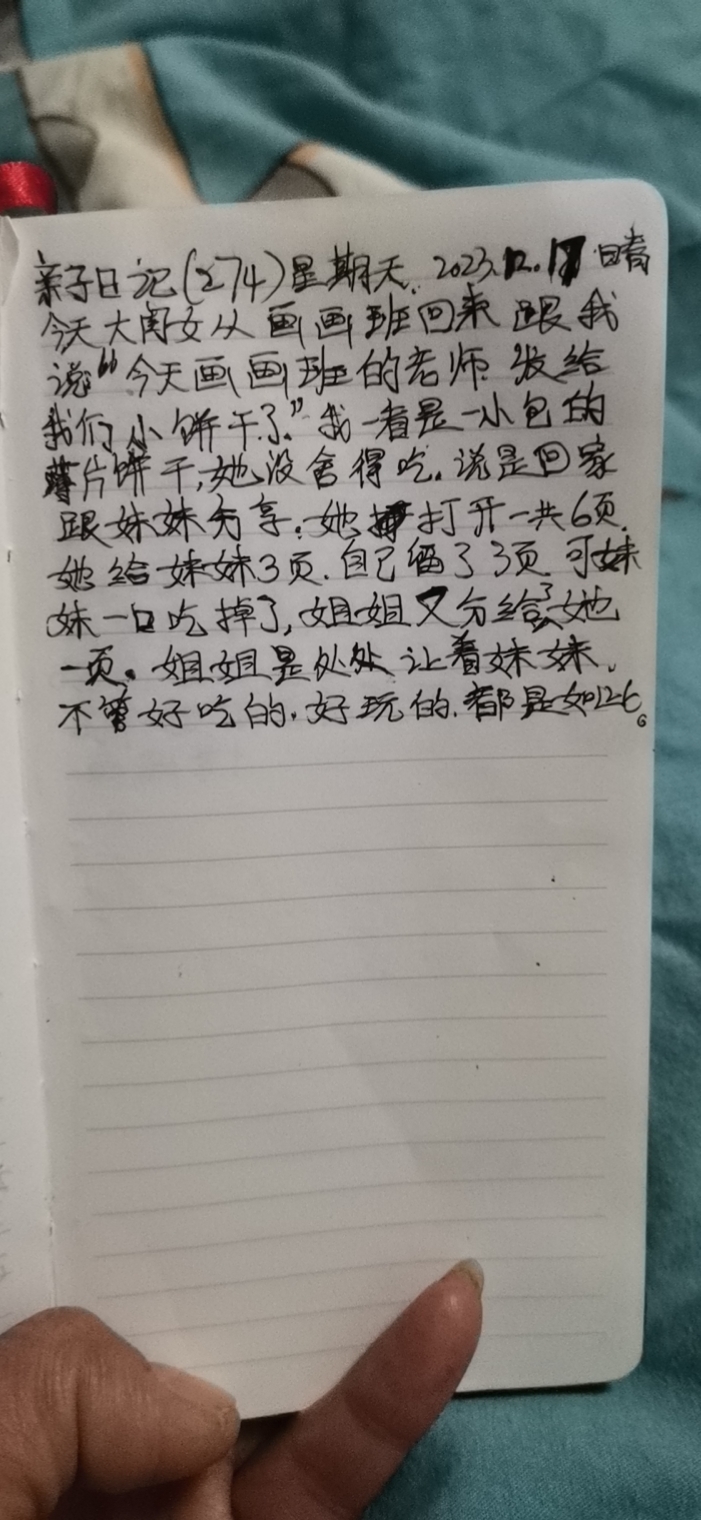 亲子日记(274)星期天. 2023.12.17 晴
今天大闺女从画画班回来跟我
说“今天画画班的老师发给
我们小饼干了.”我一看是一小包的
薄片饼干,她没舍得吃.说是回家
跟妹妹分享.她打开一共6页.
她给妹妹3页.自己留了3页.可妹
妹一口吃掉了,姐姐又分给了她
一页。姐姐是处处让着妹妹、
不管好吃的.好玩的.都是如此。